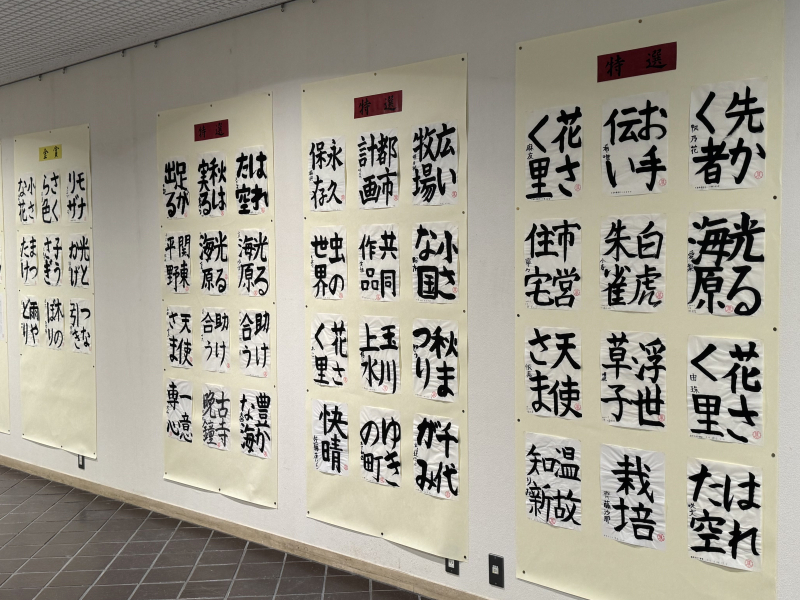 特選
先か
く者
お手
伝い
花さ
く里
光る
海原
白虎
朱雀
市営
住宅
花さ
く里
浮世
草子
天使
さま
はれ
た空
栽培
温故
知新
特選
広い
牧場
都市
計画
永久
保存
小さ
な国
共同
作品
虫の
世界
秋ま
つり
玉川
上水
花さ
く里
千代
がみ
ゆき
の町
快晴
特選
はれ
た空
秋は
実る
足が
出る
光る
海原
光る
海原
関東
平野
助け
合う
助け
合う
天使
さま
豊か
な海
古寺
晩鐘
一意
専心
金賞
モナ
リザ
さく
ら色
小さ
な花
光と
かげ
子う
さぎ
まつ
たけ
つな
引き
木の
雨や
どり